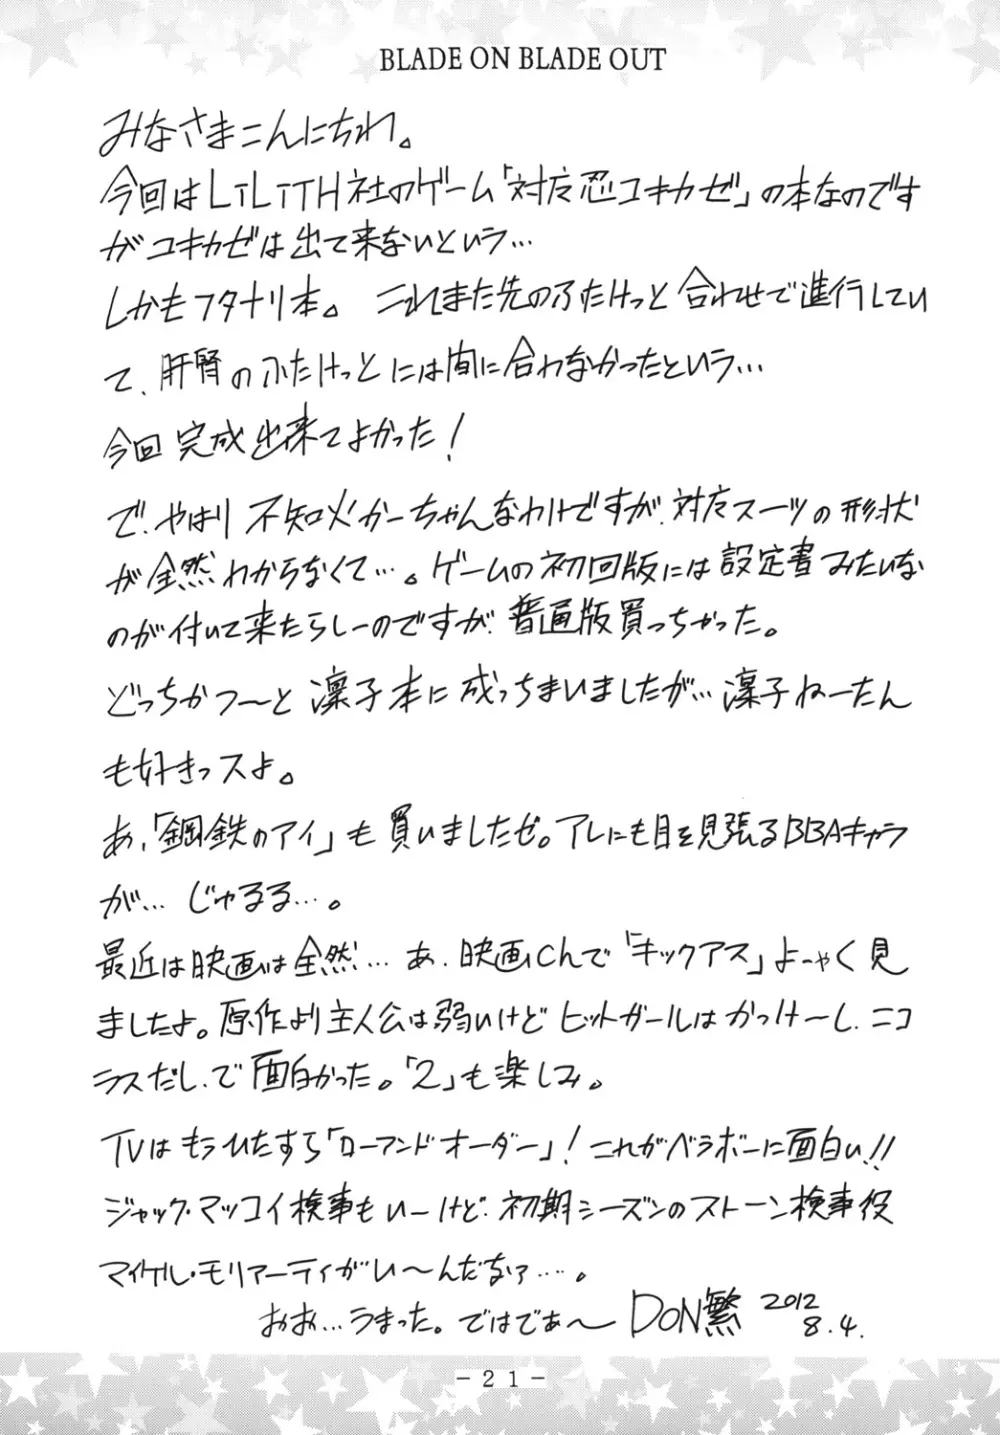 BLADE ON BLADE OUT
みなさまこんにちわ。
今回はLILITH社のゲーム「対魔忍ユキカゼ」の本なのです
がユキカゼは出て来ないという…
しかもフタナリ本。これまた先のふたけっと合わせで進行してい
て、肝腎のふたけっとには間に合わなかったという…
今回完成出来てよかった!
で、やはり不知火かーちゃんなわけですが、対魔スーツの形状
が全然わからなくて…。ゲームの初回版には設定書みたいな
のが付いて来たらしーのですが、普通版買っちゃった。
どっちかつ〜と凛子本に成っちまいましたが…凛子ねーたん
も好きっスよ。
あ、「鋼鉄のアイ」も買いましたぜ。アレにも目を見張るBBAキャラ
が… じゅるる…。
最近は映画は全然… あ、映画Chで「キックアス」よーやく見
ましたよ。原作より主人公は弱いけどヒットガールはかっけーし、ニコ
ラスだし、で面白かった。「2」も楽しみ。
TVはもうひたすら「ローアンドオーダー」!これがベラボーに面白い!!
ジャック・マッコイ検事もいーけど、初期シーズンのストーン検事役
マイケル・モリアーティがい〜んだなァ…。
おお…うまった。ではでぁ〜 DON繁 2012
8.4.
-21-